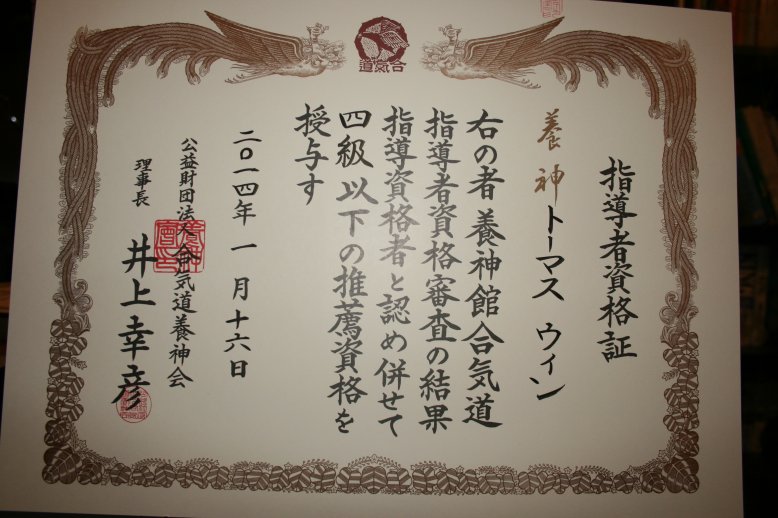 合氣道
指導者資格証
養神 トーマス ウィン
右の者養神館合気道
指導者資格審査の結果
指導資格者と認め併せて
四級以下の推薦資格を
授与す
二〇一四年一月十六日
公益財団法人合気道養神会
理事長 井上幸彦